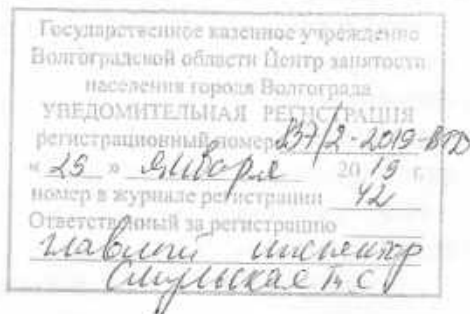 Государственное казенное учреждение
Волгоградской области Центр занятости
населения города Волгограда
УВЕДОМИТЕЛЬНАЯ РЕГИСТРАЦИЯ
регистрационный номер 237/2-2019-ВТД
« 25 » января 2019 г.
номер в журнале регистрации 42
Ответственный за регистрацию
главный инспектор